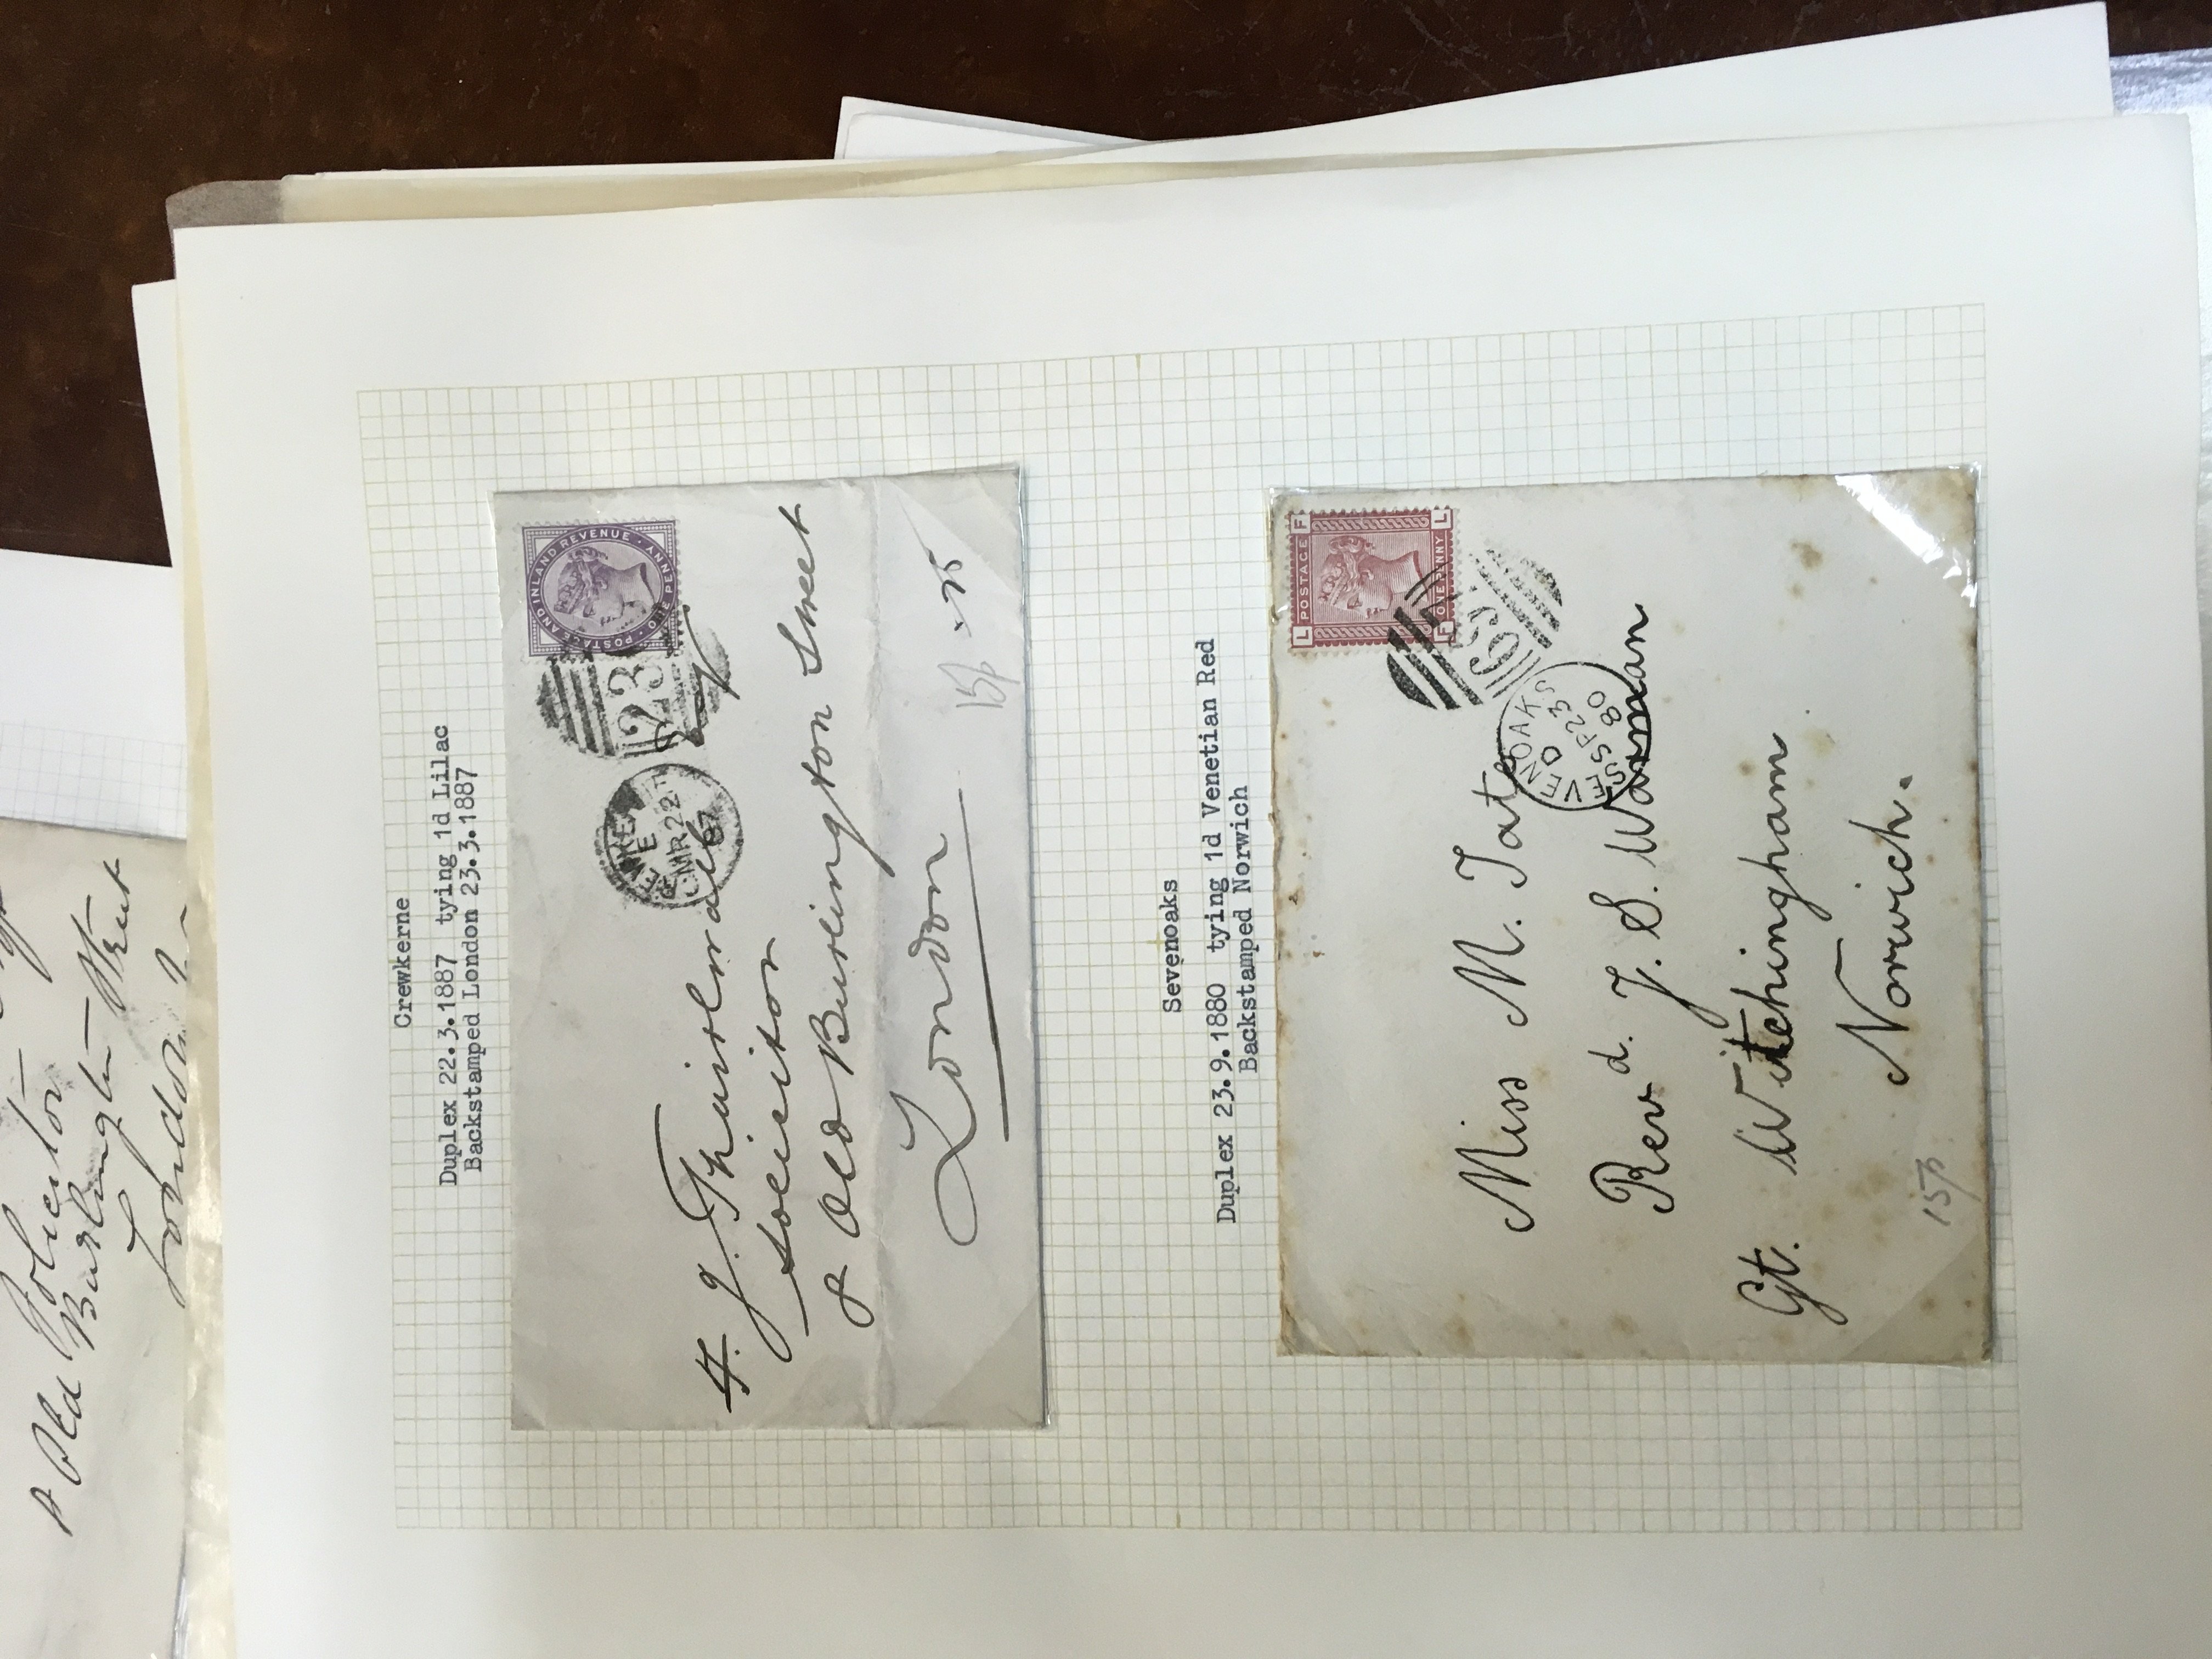 Solicitor
Old Burlington Street
London
Crewkerne
Duplex 22.3.1887 tying 1d Lilac
Backstamped London 23.3.1887
POSTAGE AND INLAND REVENUE · ONE PENNY ·
MR 22
87
H. J. Thirlwall
Solicitor
8 Old Burlington Street
London
Sevenoaks
Duplex 23.9.1880 tying 1d Venetian Red
Backstamped Norwich
L POSTAGE F
F ONE PENNY L
SEVENOAKS
D
SP 23
80
Miss M. Tate
Revd. J. S. Warman
Gt. Witchingham
Norwich.